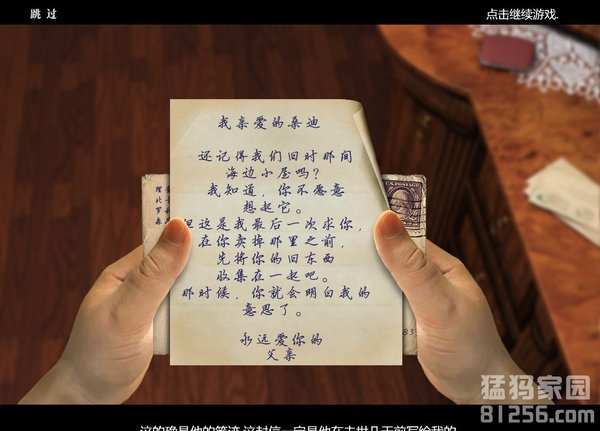 跳 过
点击继续游戏.
我亲爱的桑迪
还记得我们旧时那间
海边小屋吗?
我知道, 你不愿意
想起它。
但这是我最后一次求你,
在你卖掉那里之前,
先将你的旧东西
收集在一起吧。
那时候, 你就会明白我的
意思了。
永远爱你的
父亲
这的确是他的笔迹,这封信一定是他在去世几天前写给我的.
猛犸家园
81256.com